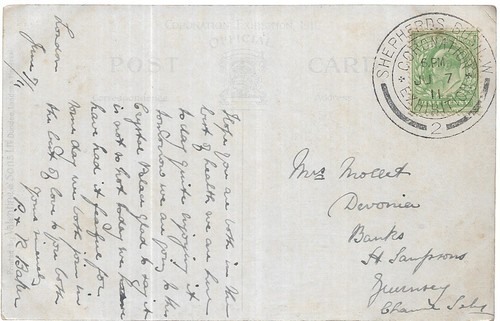 London
June 7/11
Hope you are both in the
best of health we are here
to day quite enjoying it
tomorrow we are going to the
Crystal Palace glad to say it
is not so hot today we have
have had it fearful for
some day will both join in
the best of love to you both
yours sincerely
B & R Baker
Mrs Mollet
Devonia
Banks
St Sampsons
Guernsey
POST
CARD
OFFICIAL
SHEPHERDS BUSH. W
CORONATION
EXHIBITION
5 PM
JU 7
11
2